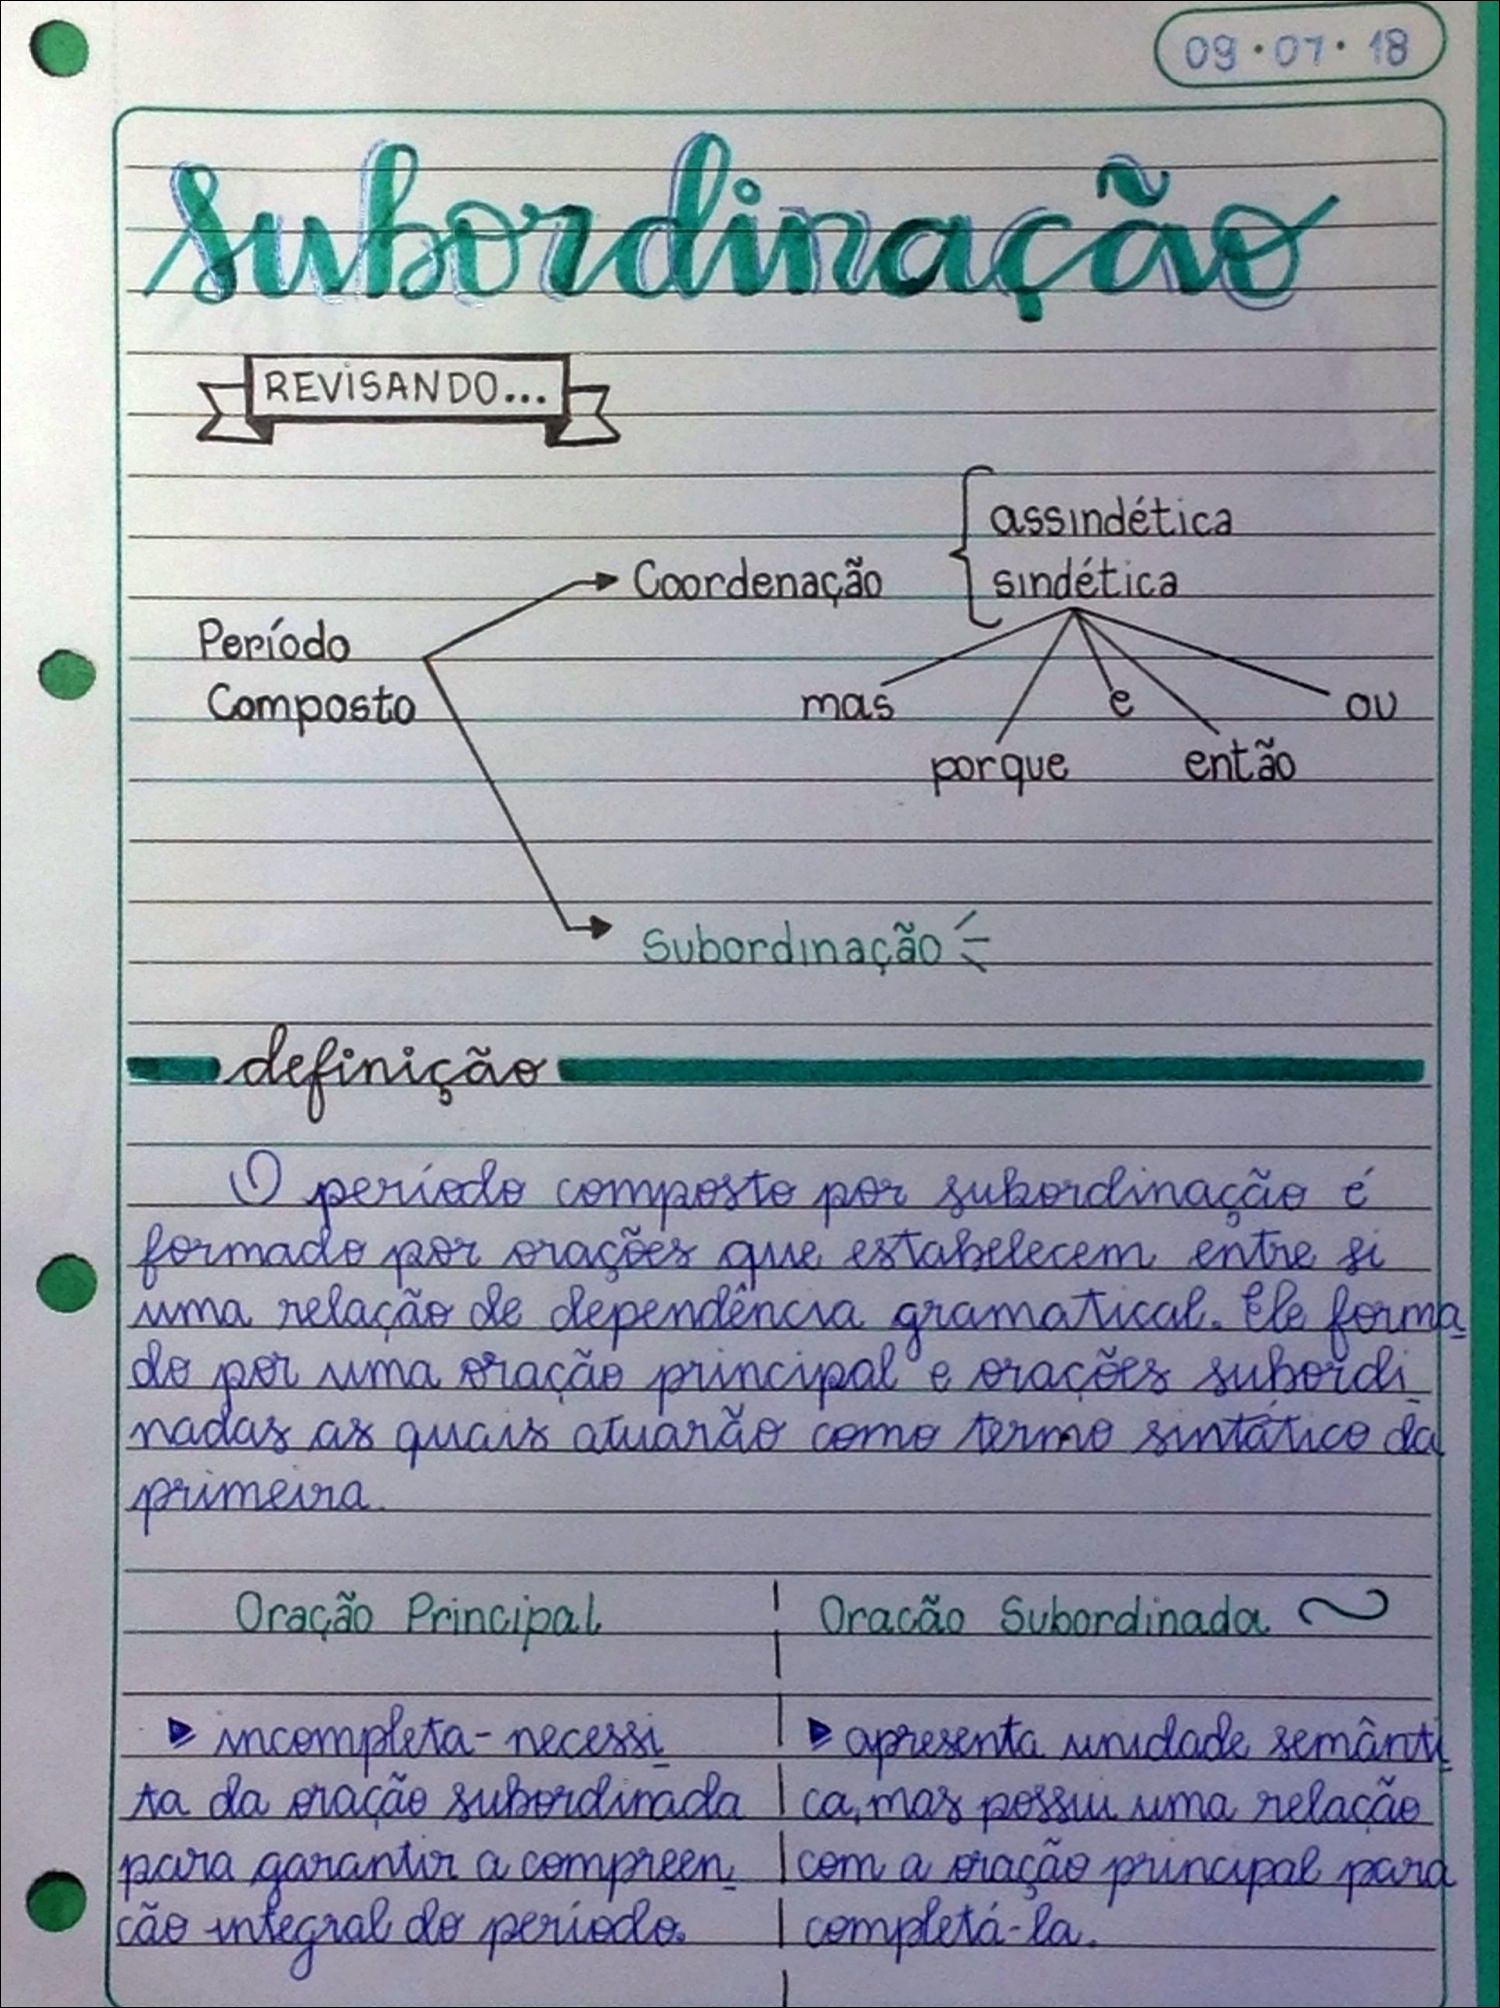 09·07·18
Subordinação
REVISANDO...
assindética
Coordenação
sindética
Período
Composto
mas
e
ou
porque
então
Subordinação
definição
O período composto por subordinação é
formado por orações que estabelecem entre si
uma relação de dependência gramatical. Ele forma
do por uma oração principal e orações subordi
nadas as quais atuarão como termo sintático da
primeira.
Oração Principal
Oracão Subordinada
incompleta - necessi
ta da oração subordinada
para garantir a compreen
ção integral do período.
apresenta unidade semânti
ca, mas possui uma relação
com a oração principal para
completá-la.